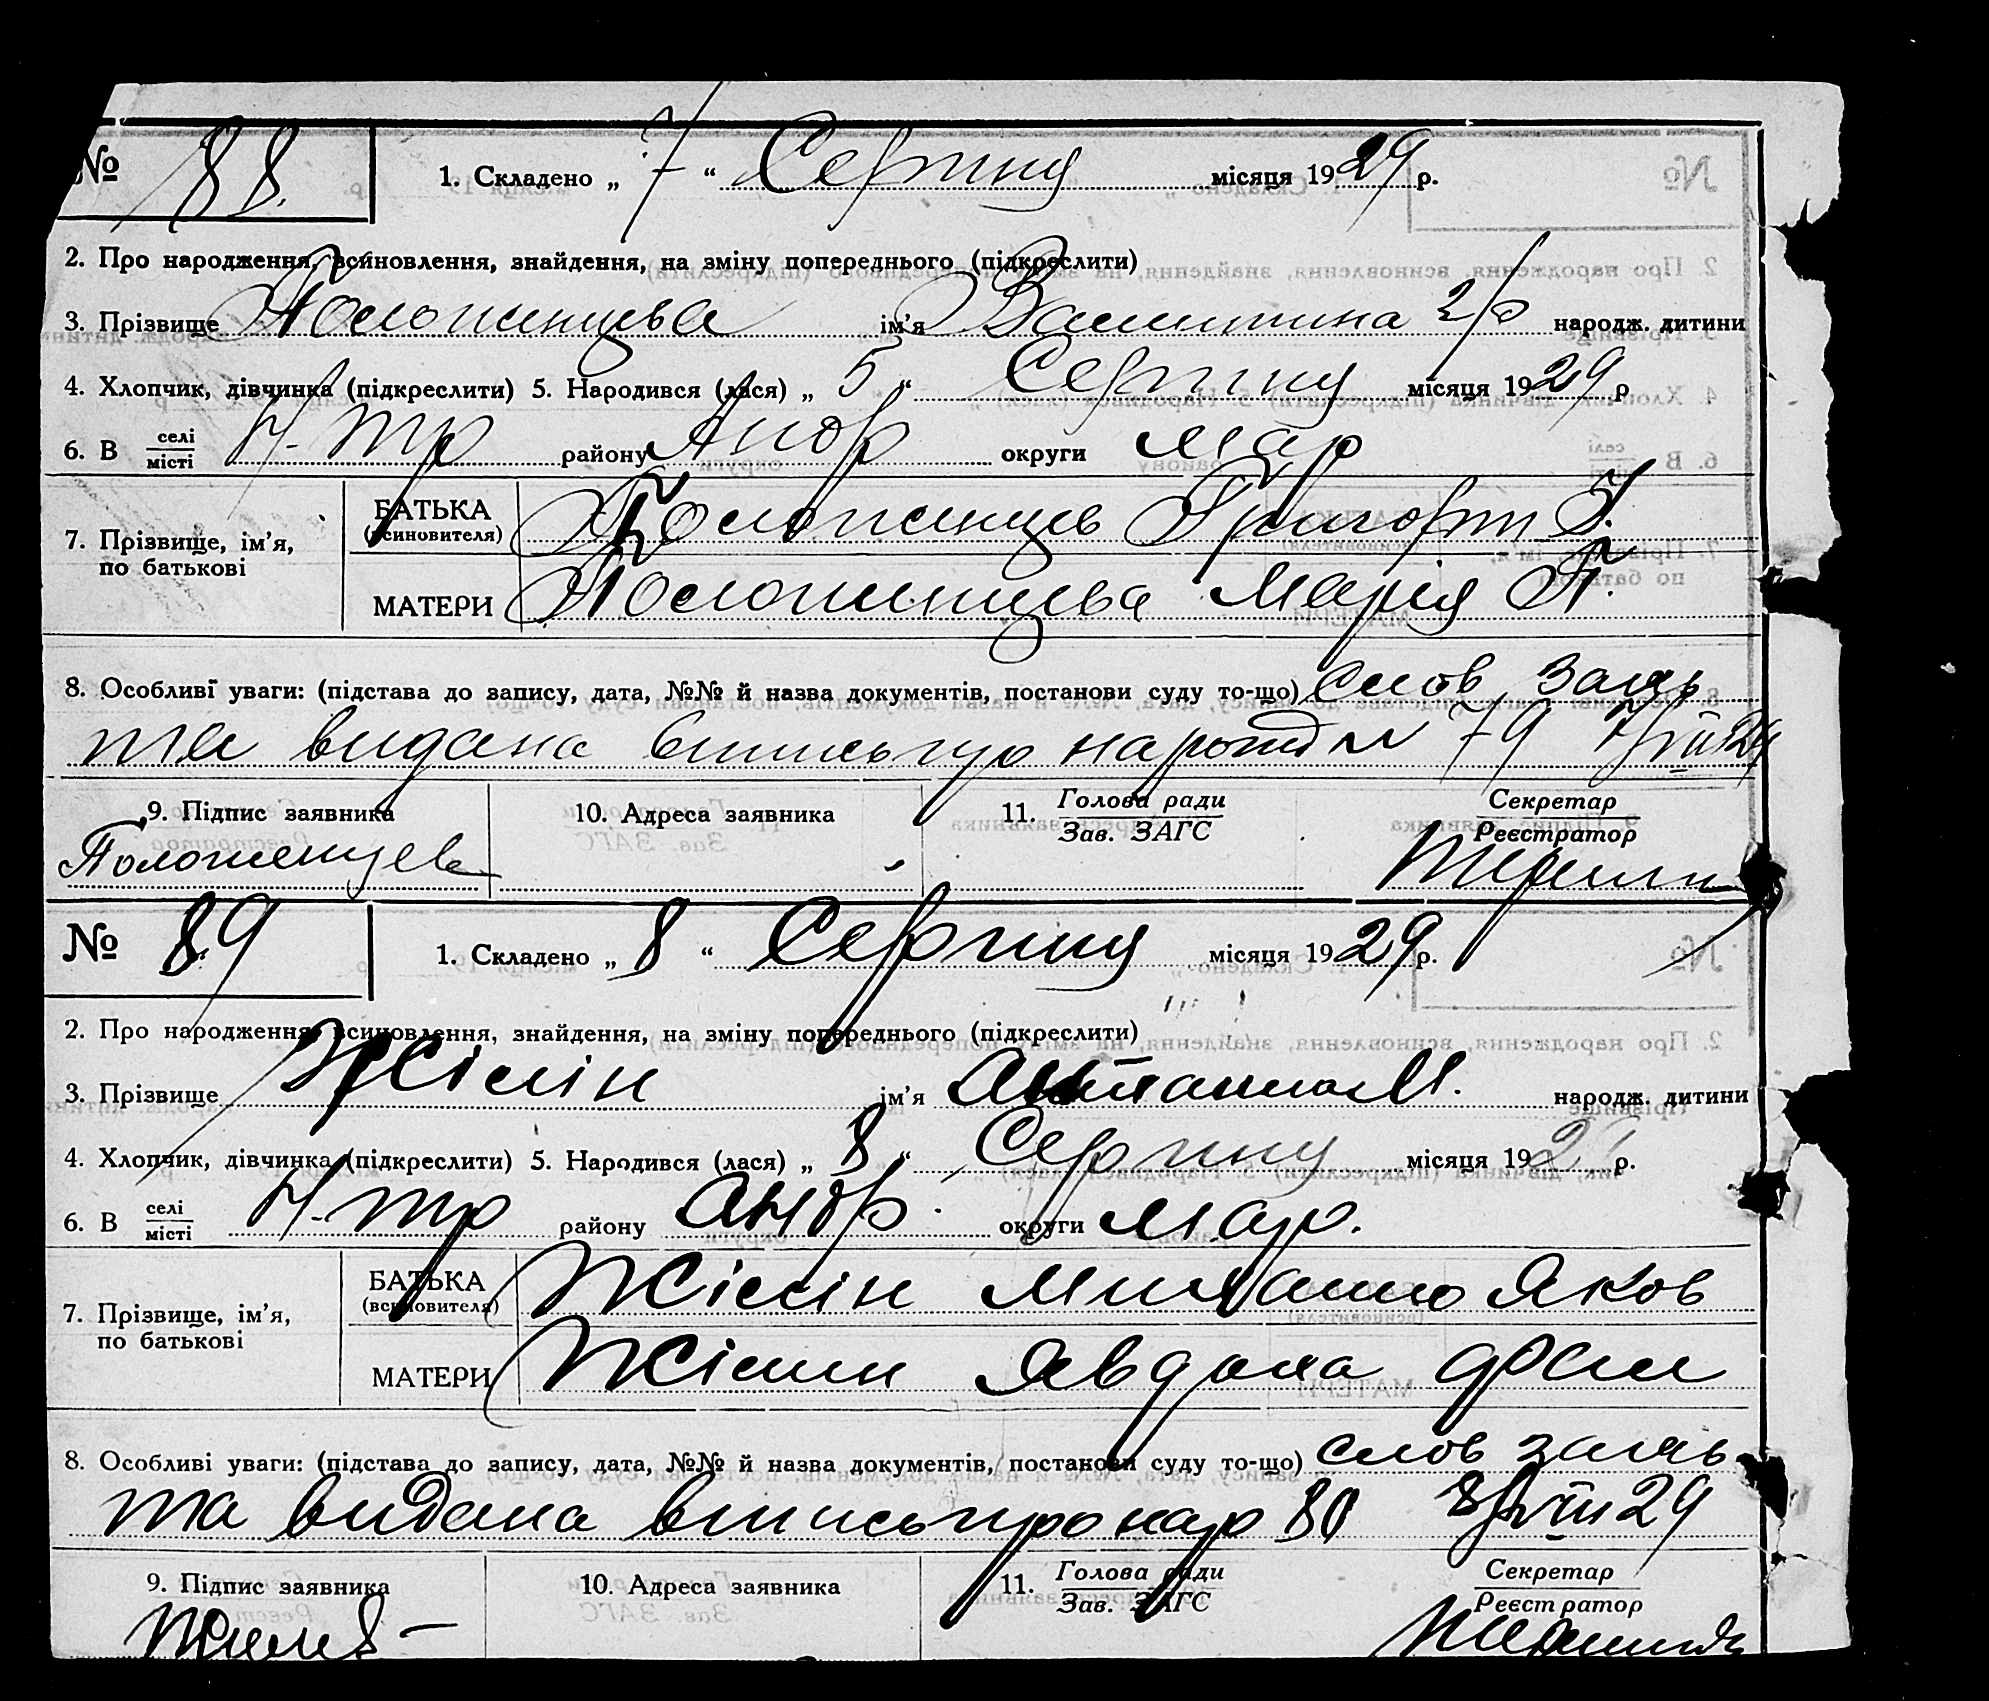 № 88. 1. Складено „ 7 “ Серпну місяця 1929 р.
2. Про народження, всиновлення, знайдення, на зміну попереднього (підкреслити)
3. Прізвище ім’я Валентина 2/ народж. дитини
4. Хлопчик, дівчинка (підкреслити) 5. Народився (лася) „ 5 “ Серпну місяця 1929 р
6. В селі/місті Н-тр району Анор округи Мар
7. Прізвище, ім’я, по батькові
БАТЬКА (всиновителя) Григорій
МАТЕРИ Марія П.
8. Особливі уваги: (підстава до запису, дата, №№ й назва документів, постанови суду то-що) слов заявь
та видана випись про народ № 79 7/VIII 29
9. Підпис заявника 10. Адреса заявника 11. Голова ради/Зав. ЗАГС Секретар/Реєстратор
№ 89 1. Складено „ 8 “ Серпну місяця 1929 р.
2. Про народження, всиновлення, знайдення, на зміну попереднього (підкреслити)
3. Прізвище Жілін ім’я М. народж. дитини
4. Хлопчик, дівчинка (підкреслити) 5. Народився (лася) „ 8 “ Серпну місяця 192 р.
6. В селі/місті Н-тр району Анор. округи Мар.
7. Прізвище, ім’я, по батькові
БАТЬКА (всиновителя) Жілін Михайло Яков
МАТЕРИ Жілин Явдоха
8. Особливі уваги: (підстава до запису, дата, №№ й назва документів, постанови суду то-що) слов заявь
та видана випись про нар 80 8/VIII 29
9. Підпис заявника 10. Адреса заявника 11. Голова ради/Зав. ЗАГС Секретар/Реєстратор